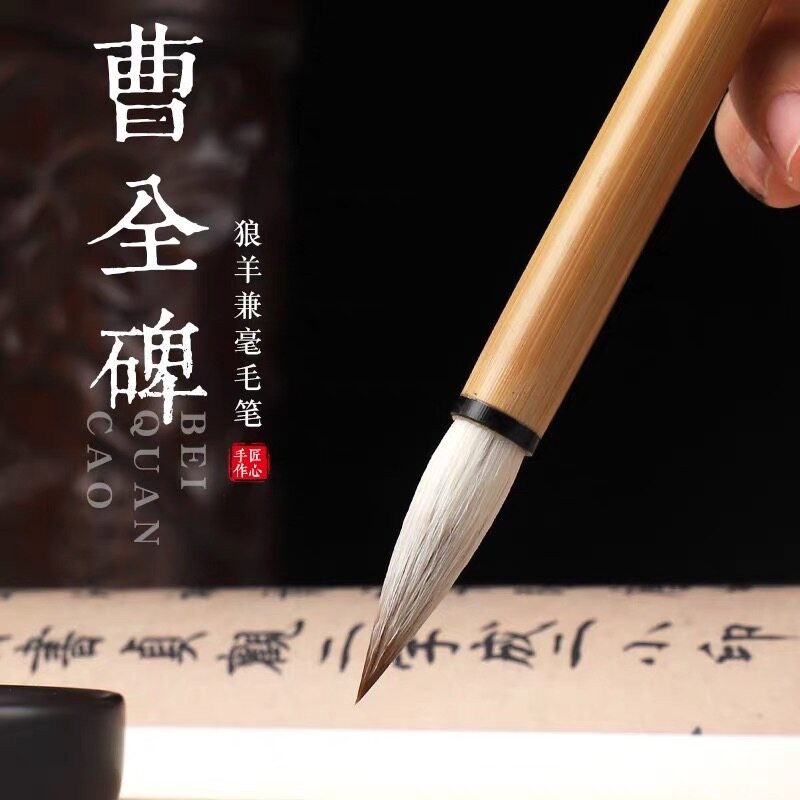 曹全碑
狼羊兼毫毛笔
匠心
手作
BEI
QUAN
CAO